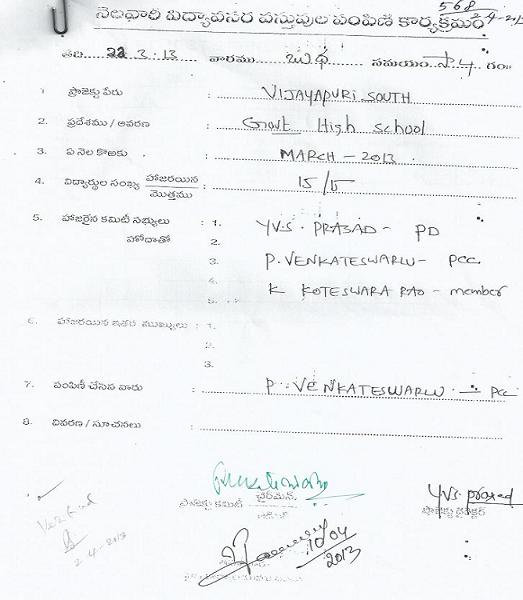 568
నెలవారీ విద్యావసర వస్తువుల పంపిణీ కార్యక్రమం
తేది 22.3.13 వారము బుధ సమయం సా 4 గం
1. ప్రాజెక్టు పేరు : VIJAYAPURI SOUTH
2. ప్రదేశము / ఆవరణ : Govt High School
3. ఏ నెల కొఱకు : MARCH - 2013
4. విద్యార్థుల సంఖ్య హాజరయిన / మొత్తము : 15/15
5. హాజరైన కమిటీ సభ్యులు : 1. Y.V.S. PRASAD - PD
హోదాతో 2.
3. P. VENKATESWARLU - PCC
4. K KOTESWARA RAO - member
5.
6. హాజరయిన ఇతర ముఖ్యులు : 1.
2.
3.
7. పంపిణీ చేసిన వారు : P. VENKATESWARLU - PCC
8. వివరణ / సూచనలు :
ప్రాజెక్టు కమిటీ ఛైర్మెన్
Y.V.S. Prasad
ప్రాజెక్టు డైరెక్టర్
Verified
2-4-2013
10/04
2013